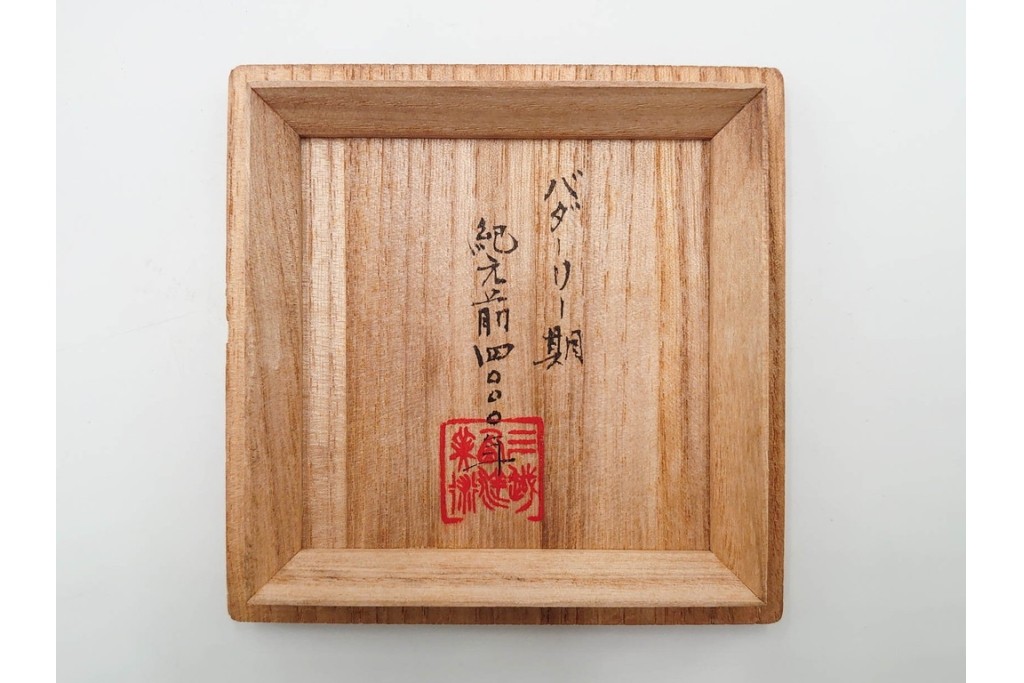 バダーリー期
紀元前四〇〇〇年
三越
美術